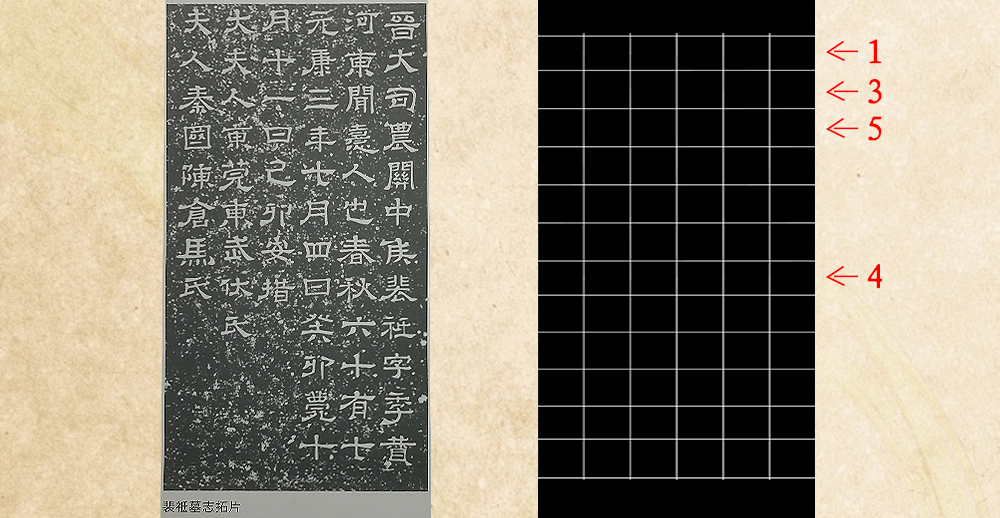 晉大司農關中侯裴祗字季贊
河東聞憙人也春秋六十有七
元康三年七月四日癸卯薨十
月十一日己卯安措
大夫人東莞東武伏氏
夫人秦國陳倉馬氏
裴祗墓志拓片
1
3
5
4